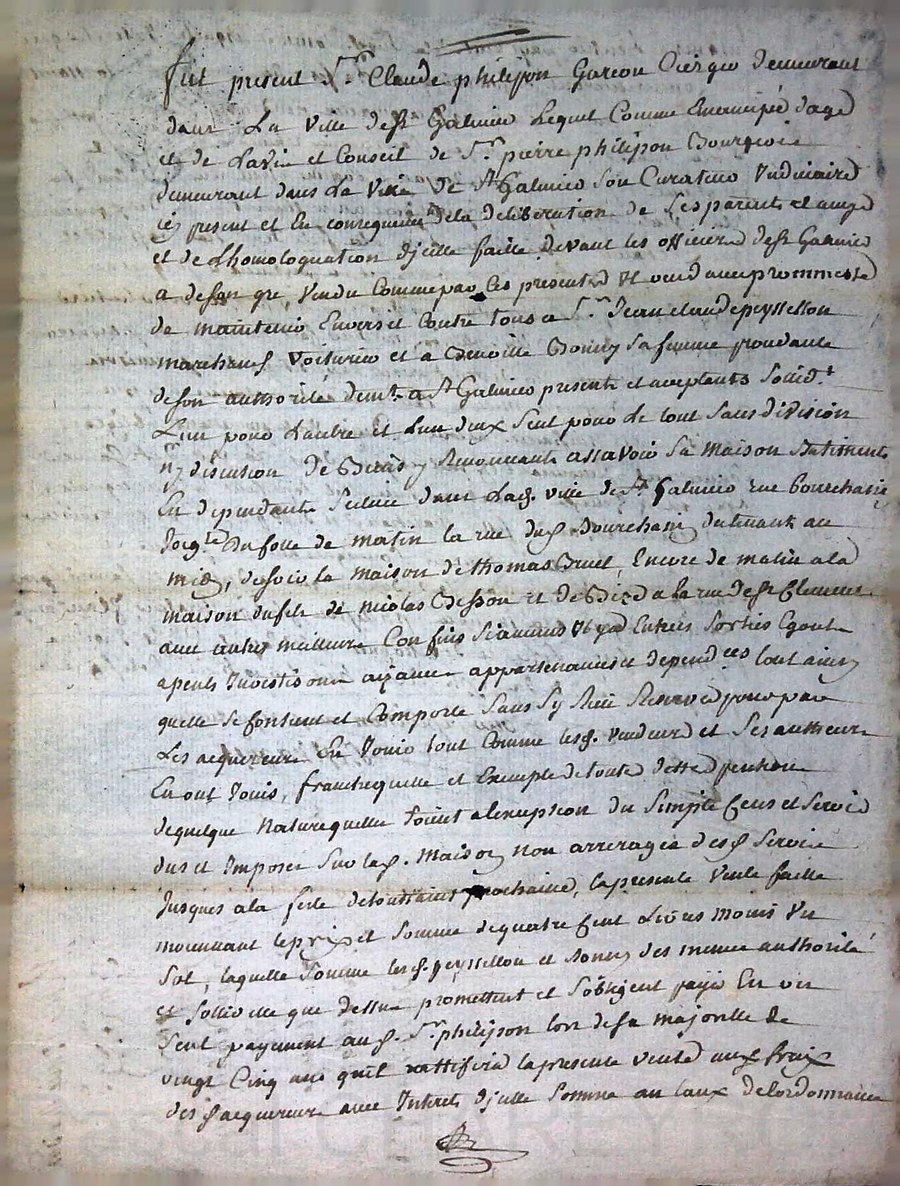 fut present Sr. Claude philipon Garcon Ciergier demeurant
dans La Ville de St Galmier Lequel Comme Emancipé d'age
et de Lavis et Conseil de Sr. pierre philipon Bourgeois
demeurant dans La Ville de St Galmier Son Curateur Judiciaire
icy present et En consequence de la deliberation de Ses parents et amys
et de Lhomologuation dycelle faitte devant les officiers de St Galmier
a de son gre, Vendu Comme par Ces presentes Il vend avec prommesse
de maintenir Envers et Contre tous a Sr. Jean claude peyssellon
marchand Voiturier et a Benoitte Bonny sa femme procedante
de son authorité demt. a St Galmier presents et aceptants Sollidt.
L'un pour L'autre et L'un deux Seul pour Le tout Sans division
ny discusion de Biens y Renoncants assavoir Sa maison Batiments
En dependants Scitué dans Lad. ville de St Galmier rue Bourchanin
Joigte Du solle de matin la rue dud Bourchani detinant au
midy, de soir la maison de thomas Bruel, Encore de matin a la
maison du sr de Nicolas Besson et de Bize a la rue de St Clement
avec autres meilleurs Confins Si aucuns Il y a Entrées Sorties Egouts
apents Investisons aizances appartenances et dependces tout ainsy
quelle se Contient et Comporte Sans Sy Rien Reserver pour par
Les acquereurs En Jouir tout Comme led. Vendeur et Ses autheurs
En ont Jouis, franche quitte et Exempte de toute dette pention
de quelque Nature quelle Soit a lexception du Simple Cens et Servis
dus et Imposes Sur lad. Maison non arreragée desd Servis
Jusques a la feste de toussaint prochaine, la presente Vente faitte
moyennant le prix et Somme de quatre Cent Livres Moins Un
Sol, laquelle Somme lesd. peyssellon et Bonny des mesme authorité
et Sollidité que dessus promettent et S'obligent payer En un
Seul payement aud. Sr. philipon lors de sa majorité de
vingt Cinq ans quil rattifiera la presente Vente aux fraix
des d acquereurs avec Interets dycelle Somme au taux de lordonnance